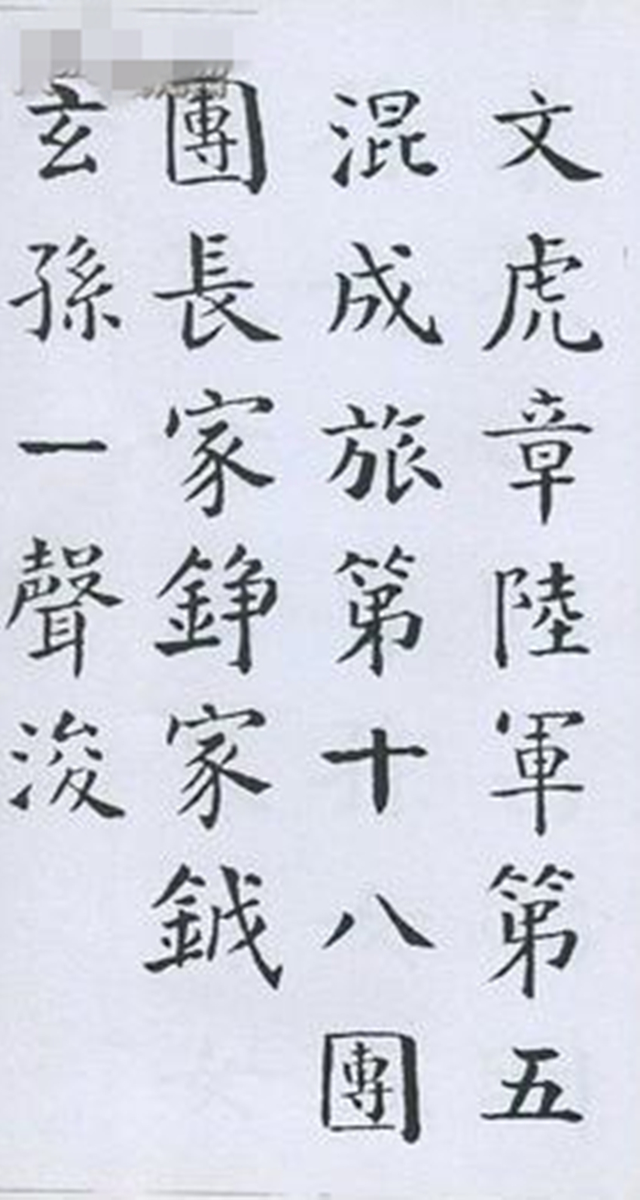 文虎章陸軍第五
混成旅第十八團
團長家錚家鉞
玄孫一聲浚